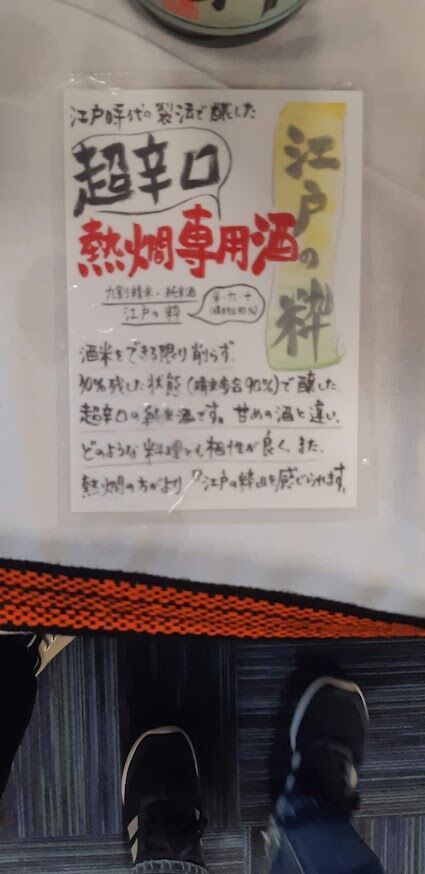 江戸時代の製法で醸した
超辛口
熱燗専用酒
江戸の粋
九割精米・純米酒
江戸の粋
米・九・十
(精米歩合90%)
酒米をできる限り削らず、
90%残した状態(精米歩合90%)で醸した
超辛口の純米酒です。甘めの酒と違い、
どのような料理とも相性が良く、また、
熱燗の方がより『江戸の粋』を感じられます。